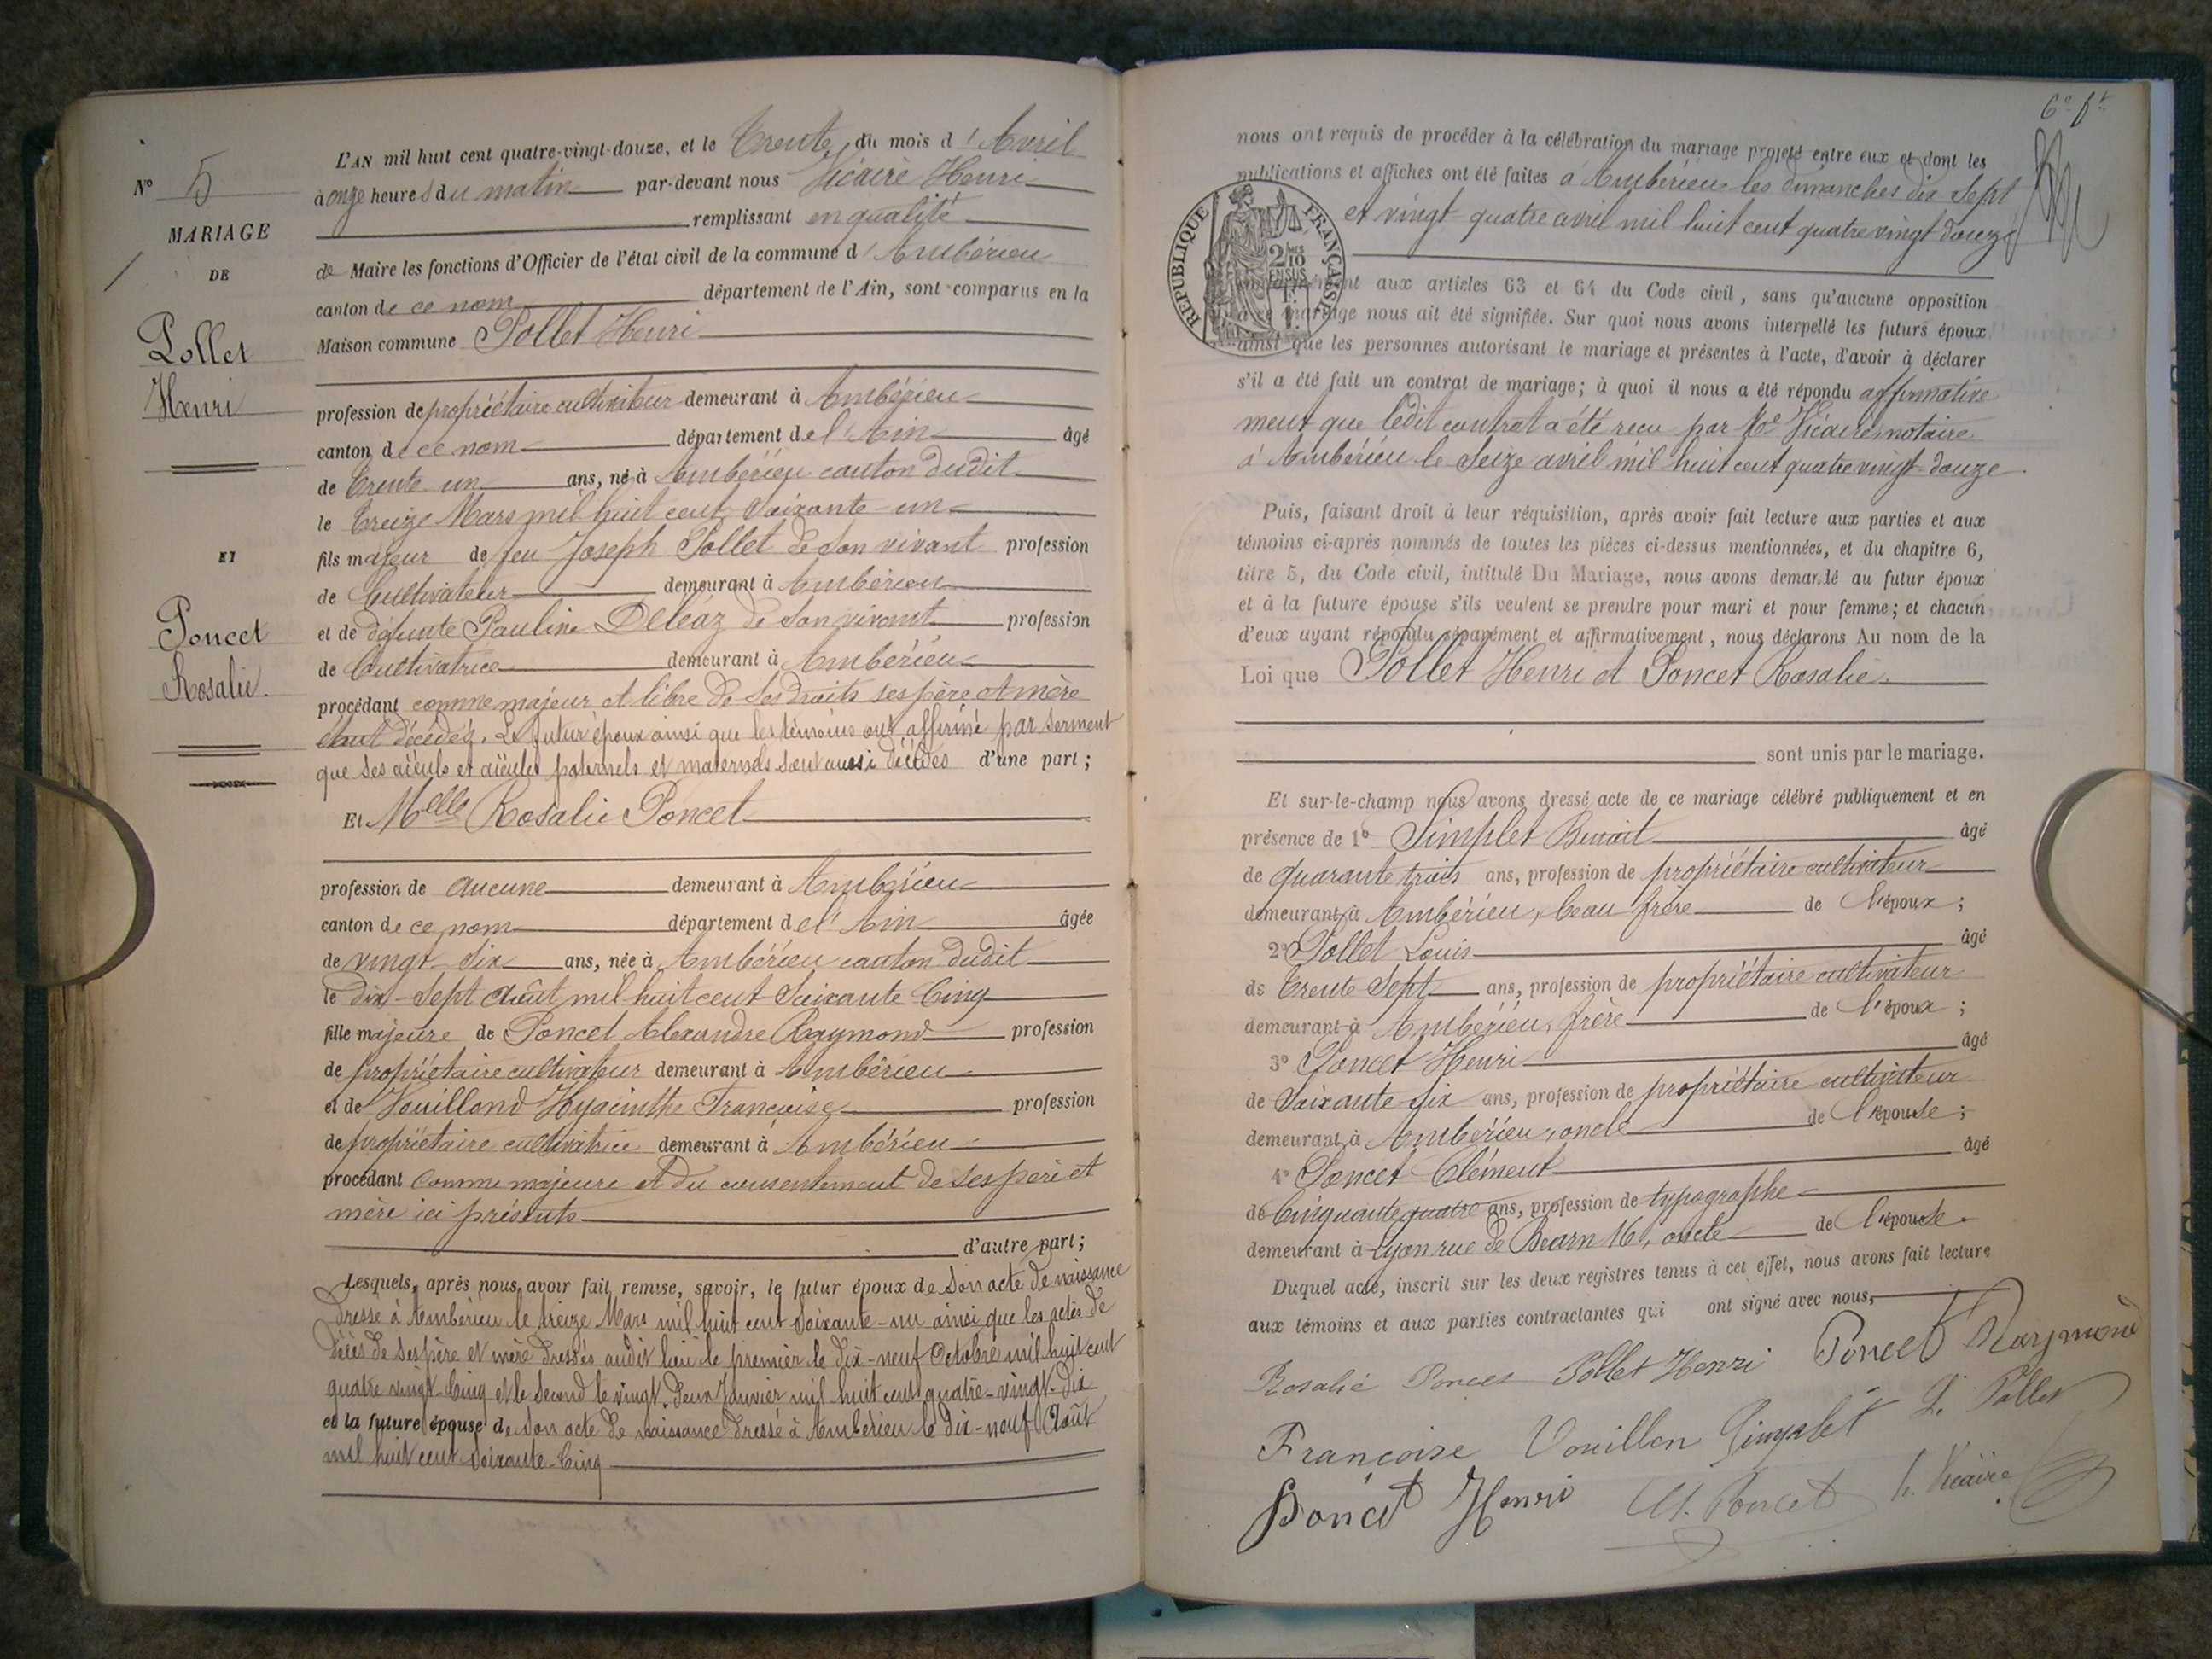 N° 5
MARIAGE
DE
Pollet
Henri
ET
Poncet
Rosalie.
L'AN mil huit cent quatre-vingt-douze, et le Trente du mois d'Avril
à onze heures du matin par-devant nous Vicaire Henri
remplissant en qualité
de Maire les fonctions d'Officier de l'état civil de la commune d'Ambérieu
canton de ce nom département de l'Ain, sont comparus en la
Maison commune Pollet Henri
profession de propriétaire cultivateur demeurant à Ambérieu
canton de ce nom département de l'Ain âgé
de trente un ans, né à Ambérieu canton dudit
le treize Mars mil huit cent soixante-un
fils majeur de feu Joseph Pollet de son vivant profession
de Cultivateur demeurant à Ambérieu
et de défunte Pauline Deléaz de son vivant profession
de Cultivatrice demeurant à Ambérieu
procédant comme majeur et libre de ses droits ses père et mère
étant décédés. Le futur époux ainsi que les témoins ont affirmé par serment
que ses aïeuls et aïeules paternels et maternels sont aussi décédés d'une part;
Et Melle Rosalie Poncet
profession de aucune demeurant à Ambérieu
canton de ce nom département de l'Ain âgée
de vingt-six ans, née à Ambérieu canton dudit
le dix-sept août mil huit cent soixante cinq
fille majeure de Poncet Alexandre Raymond profession
de propriétaire cultivateur demeurant à Ambérieu
et de Vouillond Hyacinthe Françoise profession
de propriétaire cultivatrice demeurant à Ambérieu
procédant comme majeure et du consentement de ses père et
mère ici présents
d'autre part;
Lesquels, après nous avoir fait remise, savoir, le futur époux de son acte de naissance
dressé à Ambérieu le treize Mars mil huit cent soixante-un ainsi que les actes de
décès de ses père et mère dressés audit lieu le premier le dix-neuf Octobre mil huit cent
quatre vingt-cinq et le second le vingt-deux Janvier mil huit cent quatre-vingt-dix
et la future épouse de son acte de naissance dressé à Ambérieu le dix-neuf Août
mil huit cent soixante-cinq
6e ft
nous ont requis de procéder à la célébration du mariage projeté entre eux et dont les
publications et affiches ont été faites à Ambérieu les dimanches dix sept
et vingt quatre avril mil huit cent quatre vingt douze
RÉPUBLIQUE FRANÇAISE
2 10
EN SUS
conformément aux articles 63 et 64 du Code civil, sans qu'aucune opposition
à ce mariage nous ait été signifiée. Sur quoi nous avons interpellé les futurs époux
ainsi que les personnes autorisant le mariage et présentes à l'acte, d'avoir à déclarer
s'il a été fait un contrat de mariage; à quoi il nous a été répondu affirmative
ment que ledit contrat a été reçu par Me Vicaire notaire
à Ambérieu le seize avril mil huit cent quatre vingt-douze.
Puis, faisant droit à leur réquisition, après avoir fait lecture aux parties et aux
témoins ci-après nommés de toutes les pièces ci-dessus mentionnées, et du chapitre 6,
titre 5, du Code civil, intitulé Du Mariage, nous avons demandé au futur époux
et à la future épouse s'ils veulent se prendre pour mari et pour femme; et chacun
d'eux ayant répondu séparément et affirmativement, nous déclarons Au nom de la
Loi que Pollet Henri et Poncet Rosalie.
sont unis par le mariage.
Et sur-le-champ nous avons dressé acte de ce mariage célébré publiquement et en
présence de 1° Simplet Benoit âgé
de quarante trois ans, profession de propriétaire cultivateur
demeurant à Ambérieu, beau frère de l'époux;
2° Pollet Louis âgé
de trente sept ans, profession de propriétaire cultivateur
demeurant à Ambérieu, frère de l'époux;
3° Poncet Henri âgé
de soixante six ans, profession de propriétaire cultivateur
demeurant à Ambérieu, oncle de l'épouse;
4° Poncet Clément âgé
de cinquante quatre ans, profession de typographe
demeurant à Lyon rue de Béarn 16, oncle de l'épouse.
Duquel acte, inscrit sur les deux registres tenus à cet effet, nous avons fait lecture
aux témoins et aux parties contractantes qui ont signé avec nous,
Rosalie Poncet Pollet Henri Poncet Raymond
Françoise Vouillon L. Pollet
Poncet Henri Cl. Poncet h. Vicaire